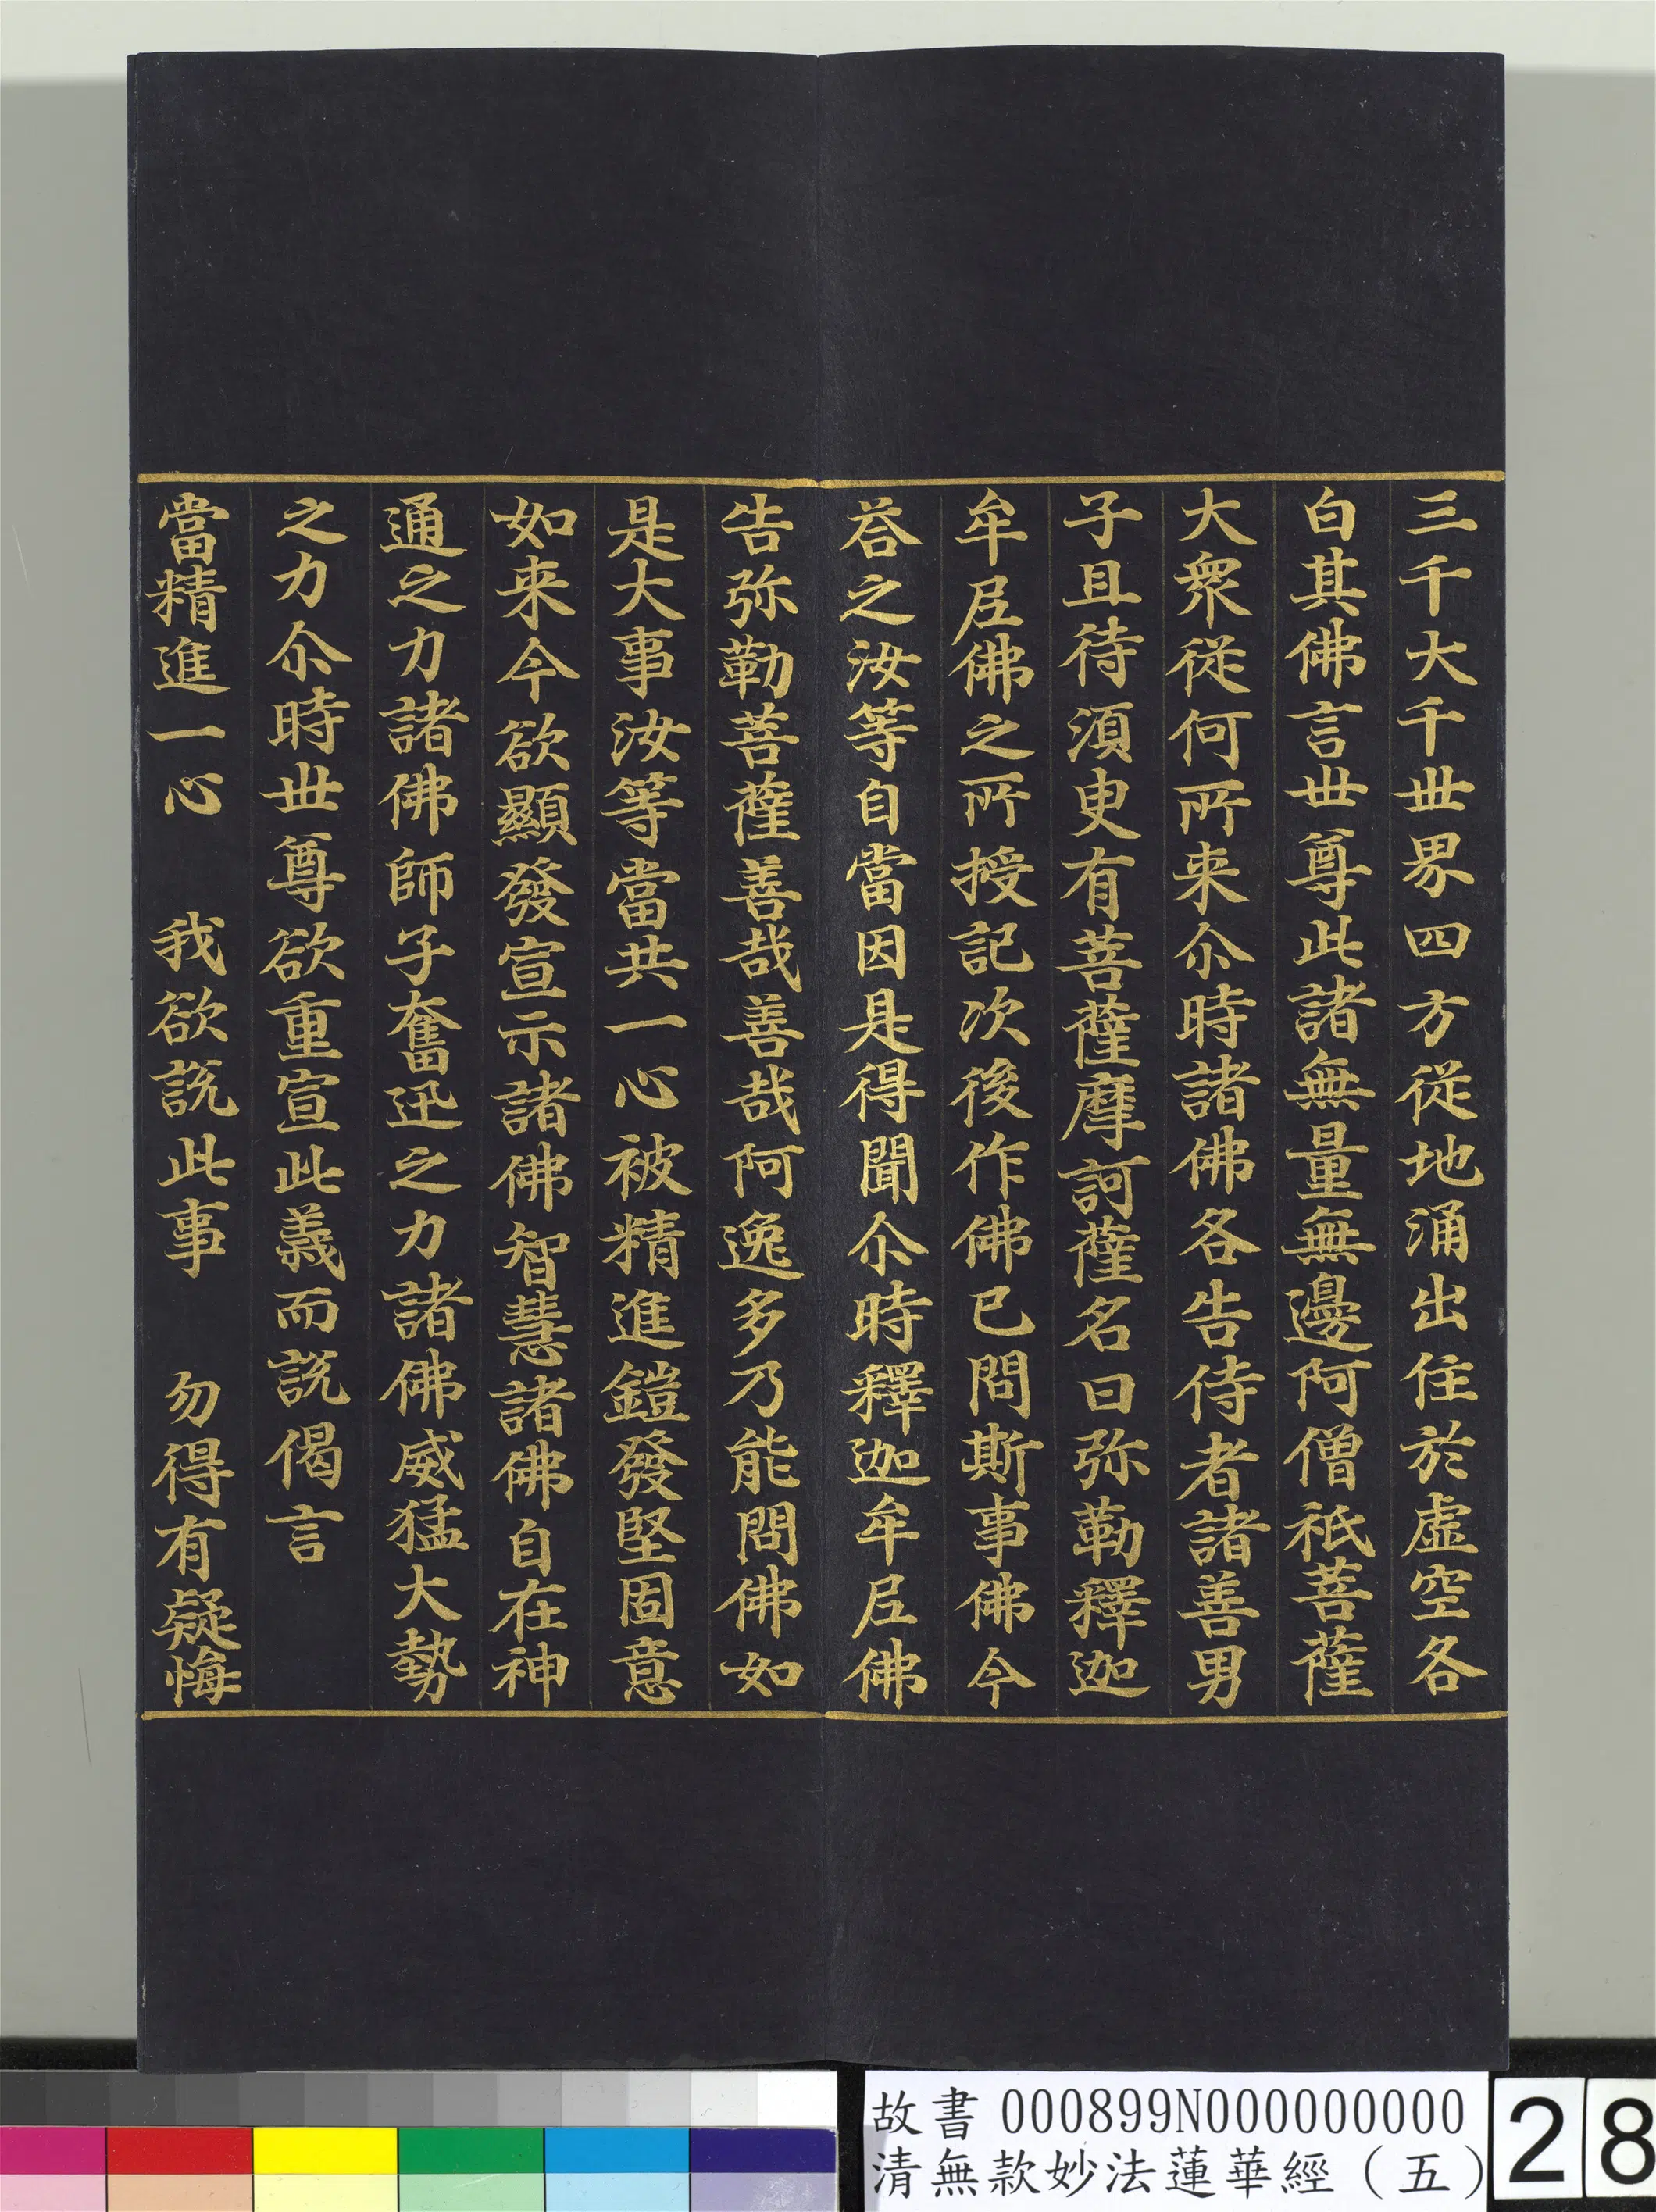 三千大千世界四方從地涌出住於虛空各
白其佛言世尊此諸無量無邊阿僧祇菩薩
大衆從何所来尒時諸佛各告侍者諸善男
子且待須臾有菩薩摩訶薩名曰弥勒釋迦
牟尼佛之所授記次後作佛已問斯事佛今
荅之汝等自當因是得聞尒時釋迦牟尼佛
告弥勒菩薩善哉善哉阿逸多乃能問佛如
是大事汝等當共一心被精進鎧發堅固意
如来今欲顯發宣示諸佛智慧諸佛自在神
通之力諸佛師子奮迅之力諸佛威猛大勢
之力尒時世尊欲重宣此義而説偈言
當精進一心　我欲説此事　勿得有疑悔
故書 000899N000000000
清無款妙法蓮華經（五）
28